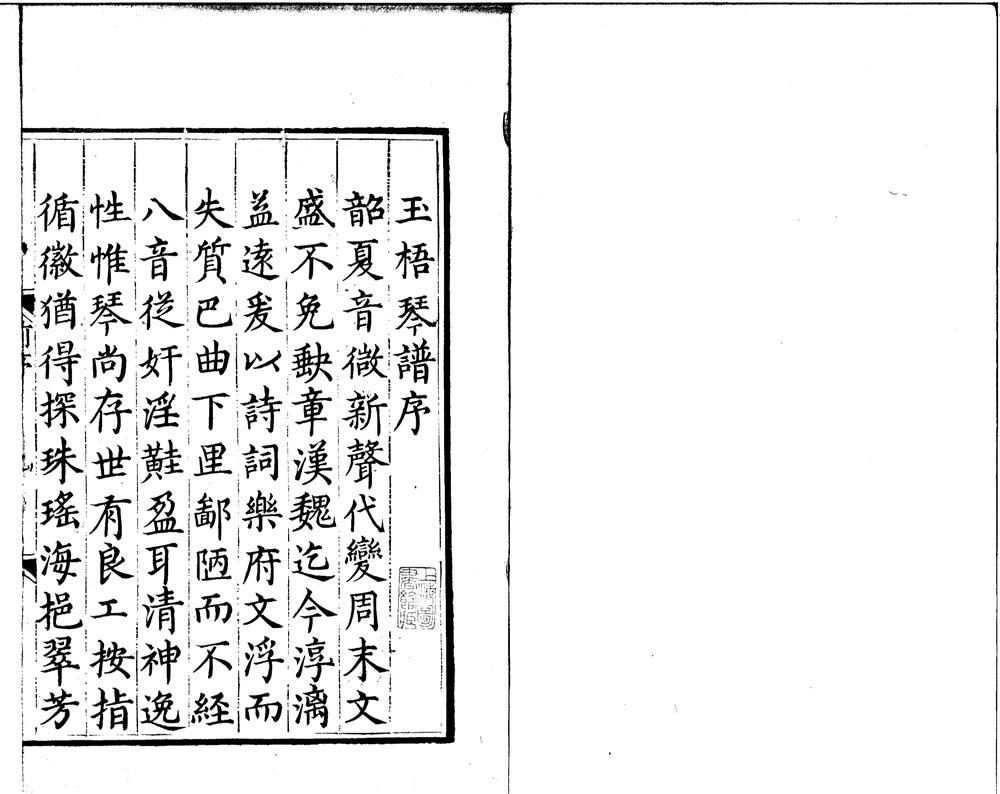 玉梧琴譜序
韶夏音微新聲代變周末文
盛不免𡙇章漢魏迄今淳漓
益遠爰以詩詞樂府文浮而
失質巴曲下里鄙陋而不経
八音從奸淫䵷盈耳清神逸
性惟琴尚存世有良工按指
循徽猶得探珠瑤海挹翠芳
上海圖書館藏